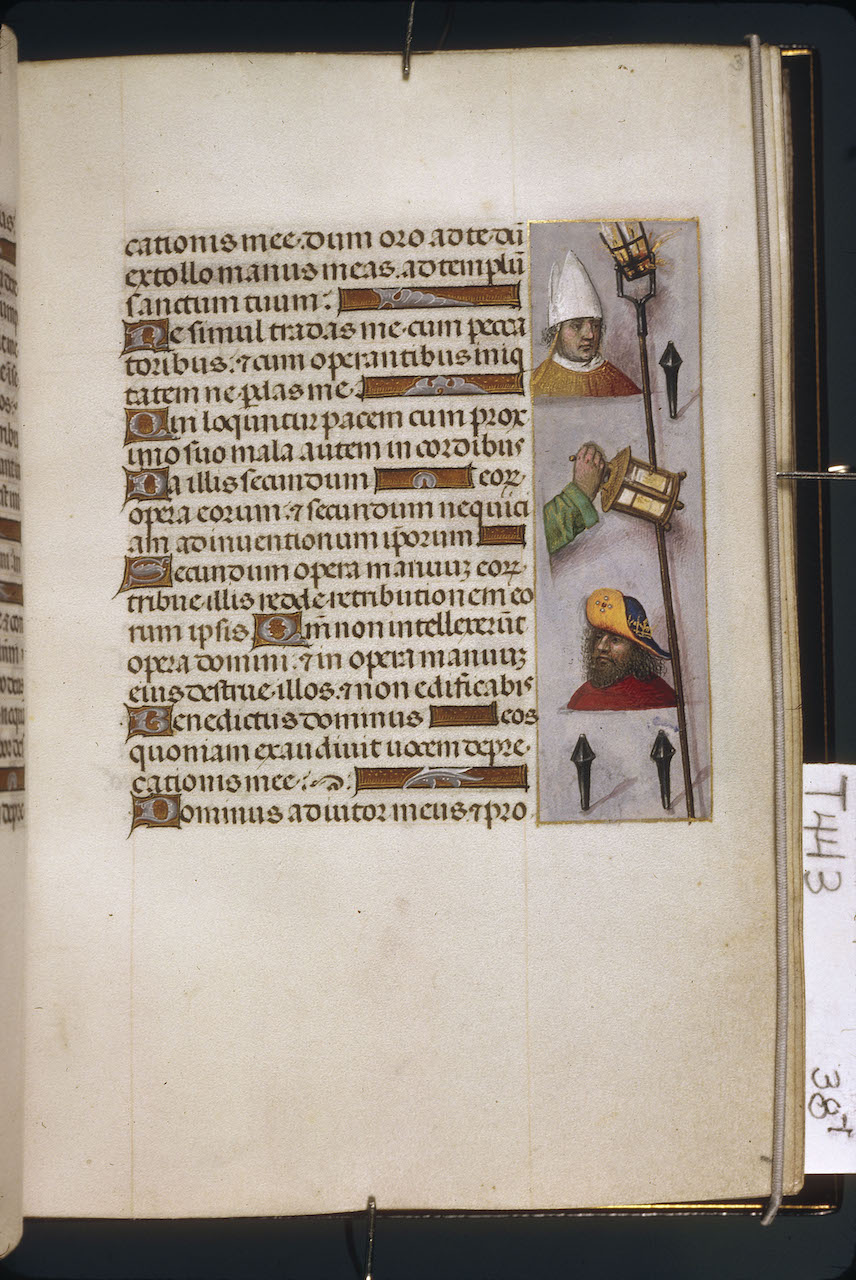 cationis mee. dum oro ad te. dū
extollo manus meas. ad templū
sanctum tuum:
Ne simul tradas me. cum pecca
toribus: ⁊ cum operantibus iniq
tatem ne ꝑdas me.
Qui loquntur pacem cum prox
imo suo mala autem in cordibus
Da illis secundum eoꝝ
opera eorum. ⁊ secundum nequici
am adinuentionum ip̄orum
Secundum opera manuuꝫ eoꝝ
tribue illis redde retributionem eo
rum ipsis Qm̄ non intellexerūt
opera domini. ⁊ in opera manuuꝫ
eius destrue illos. ⁊ non edificabis
Benedictus dominus eos
quoniam exaudiuit uocem depre
cationis mee:
Dominus adiutor meus ⁊ pro
3
T443
38r